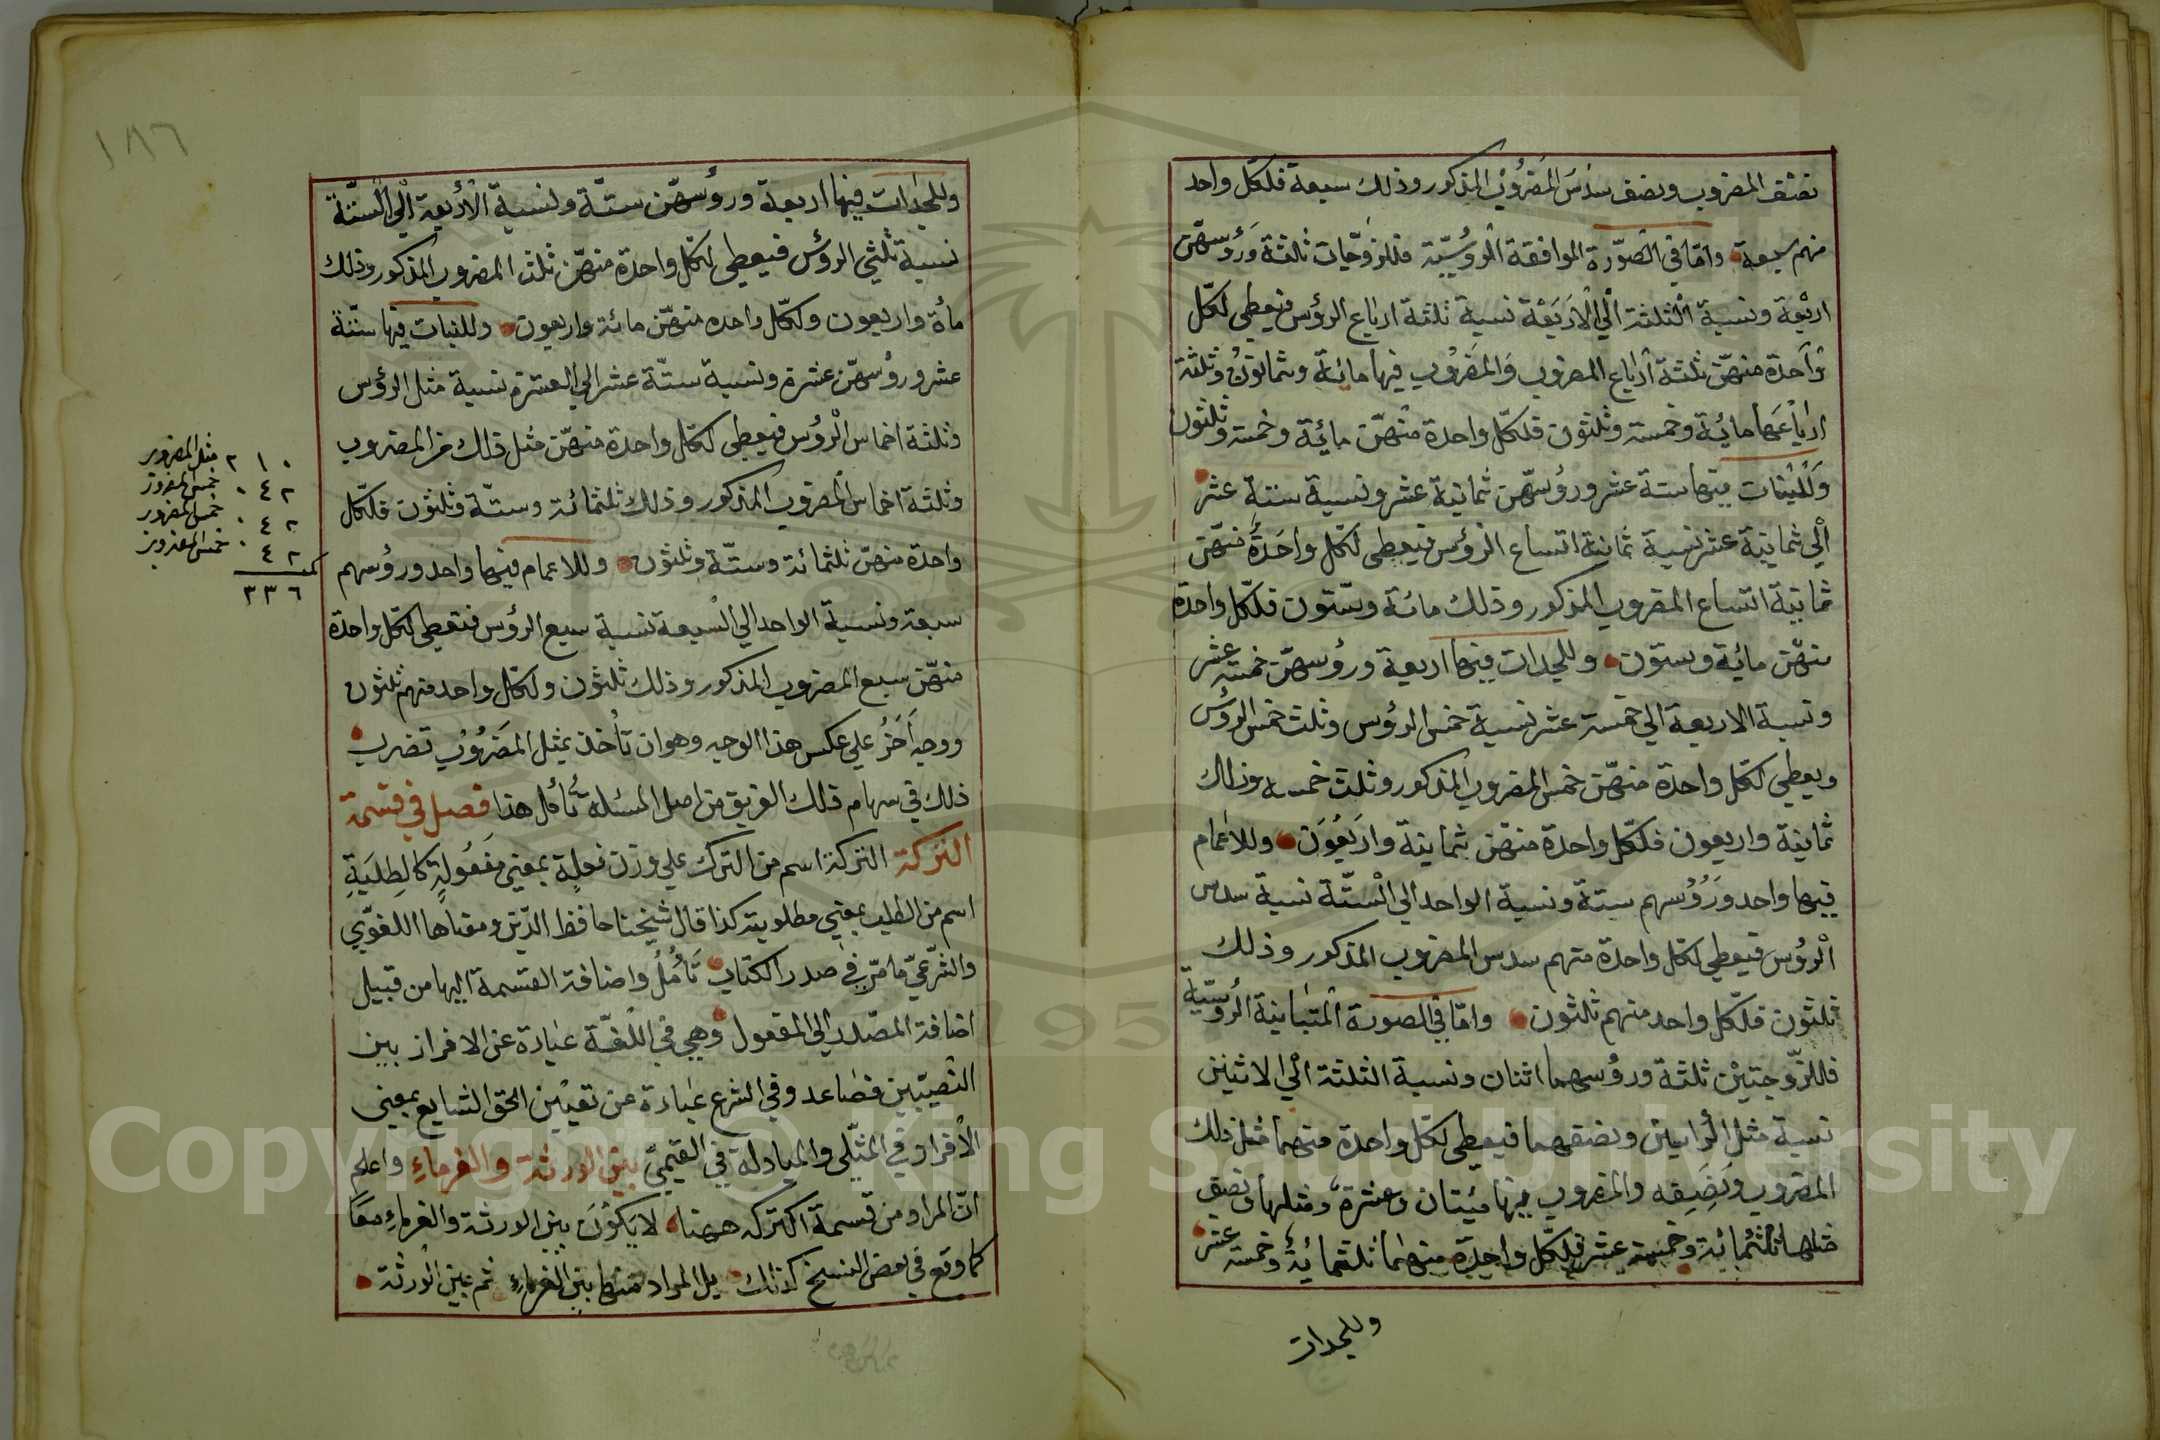 نصف المضروب ونصف سدس المضروب المذكور وذلك سبعة فلكل واحد
منهم سبعة واما في الصورة الموافقة الرؤسية فللزوجات ثلثة ورؤسهن
اربعة ونسبة الثلثة الي الاربعة نسبة ثلثة ارباع الرؤس فيعطي لكل
واحدة منهن ثلثة ارباع المضروب والمضروب فيها مائة وثمانون وثلثة
ارباعها مائة وخمسة وثلثون فلكل واحدة منهن مائة وخمسة وثلثون
وللبنات فيها ستة عشر ورؤسهن ثمانية عشر ونسبة ستة عشر
الي ثمانية عشر نسبة ثمانية اتساع الرؤس فيعطي لكل واحدة منهن
ثمانية اتساع المضروب المذكور وذلك مائة وستون فلكل واحدة
منهن مائة وستون وللجدات فيها اربعة ورؤسهن خمسة عشر
ونسبة الاربعة الي خمسة عشر نسبة خمس الرؤس وثلث خمس الرؤس
ويعطي لكل واحدة منهن خمس المضروب المذكور وثلث خمسه وذلك
ثمانية واربعون فلكل واحدة منهن ثمانية واربعون وللاعمام
فيها واحد ورؤسهم ستة ونسبة الواحد الي الستة نسبة سدس
الرؤس فيعطي لكل واحدة منهم سدس المضروب المذكور وذلك
ثلثون فلكل واحد منهم ثلثون واما في الصورة المتباينة الرؤسية
فللزوجتين ثلثة ورؤسهما اثنان ونسبة الثلثة الي الاثنين
نسبة مثل الرأسين ونصفهما فيعطي لكل واحدة منهما مثل ذلك
المضروب ونصفه والمضروب فيها مئيتان وعشرة ومثلها ونصف
مثلها ثلثمائة وخمسة عشر فلكل واحدة منهما ثلثمائة وخمسة عشر
وللجدات
١٨٦
وللجدات فيها اربعة ورؤسهن ستة ونسبة الاربعة الي الستة
نسبة ثلثي الرؤس فيعطي لكل واحدة منهن ثلث المضروب المذكور وذلك
مأة واربعون ولكل واحده منهن مائة واربعون وللبنات فيها ستة
عشر ورؤسهن عشرة ونسبة ستة عشر الي العشرة نسبة مثل الرؤس
وثلثة اخماس الرؤس فيعطي لكل واحدة منهن مثل ذلك من المضروب
وثلثة اخماس المضروب المذكور وذلك ثلثمائة وستة وثلثون فلكل
واحدة منهن ثلثمائة وستة وثلثون وللاعمام فيها واحد ورؤسهم
سبعة ونسبة الواحد الي السبعة نسبة سبع الرؤس فتعطي لكل واحدة
منهن سبع المضروب المذكور وذلك ثلثون ولكل واحد منهم ثلثون
ووجه آخر علي عكس هذا الوجه وهو ان تأخذ بمثل المضروب تضرب
ذلك في سهام ذلك الفريق من اصل المسئلة تأمل هذا فصل في قسمة
التركة التركة اسم من الترك علي وزن فعلة بمعني مفعولة كالطلبة
اسم من الطلب بمعني مطلوبة كذا قال شيخنا حافظ الدين ومعناها اللغوي
والشرعي ما مر في صدر الكتاب تأمل واضافة القسمة اليها من قبيل
اضافة المصدر الي المفعول وهي في اللغة عبارة عن الافراز بين
النصيبين فصاعدا وفي الشرع عبارة عن تعيين الحق الشايع بمعني
الافراز في المثلي والمبادلة في القيمي بين الورثة والغرماء واعلم
ان المراد من قسمة التركه ههنا لا يكون بين الورثة والغرماء معا
كما وقع في بعض النسخ كذلك بل المراد منها بين الغرماء ثم بين الورثة
٢١٠ مثل المضروب
٠٤٢ خمس المضروب
٠٤٢ خمس المضروب
٠٤٢ خمس المضروب
٣٣٦
Copyright © King Saud University
195